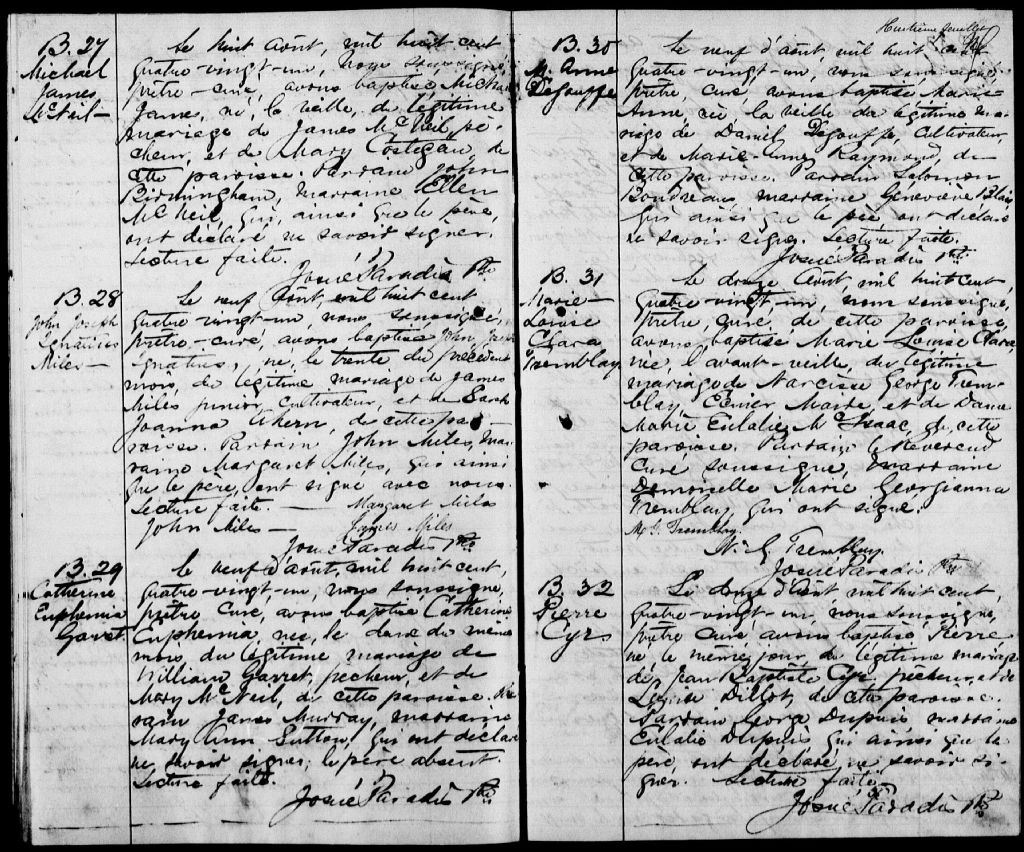 B. 27
Michael
James
McNeil —
Le huit Août, mil huit cent
quatre-vingt-un, nous soussigné,
prêtre-curé, avons baptisé Michael
James, né, la veille, de légitime
mariage de James McNeil pê-
cheur, et de Mary Costigan, de
cette paroisse. Parrain John
Birmingham, marraine Ellen
McNeil, qui, ainsi que le père,
ont déclaré ne savoir signer.
Lecture faite.
Josué Paradis Ptre
B. 28
John Joseph
Ignatius
Miles —
Le neuf Août, mil huit cent
quatre-vingt-un, nous soussigné,
prêtre-curé, avons baptisé John Joseph
Ignatius, né, le trente du précédent
mois, du légitime mariage de James
Miles junior, cultivateur, et de Sarah
Joanna Ahern, de cette pa-
roisse. Parrain John Miles, mar-
raine Margaret Miles, qui ainsi
que le père, ont signé avec nous.
Lecture faite. — Margaret Miles
John Miles — James Miles
Josué Paradis Ptre
B. 29
Catherine
Euphemia
Garret
Le neuf d'août, mil huit cent,
quatre-vingt-un, nous soussigné,
prêtre curé, avons baptisé Catherine
Euphemia, née, le du même
mois du légitime mariage de
William Garret, pêcheur, et de
Mary McNeil, de cette paroisse. Par-
rain James Murray, marraine
Mary Ann Sutton, qui ont déclaré
ne savoir signer; le père absent.
Lecture faite.
Josué Paradis Ptre
Huitième feuillet
B. 30
M. Anne
Degouffe
Le neuf d'août, mil huit cent
quatre-vingt-un, nous soussigné,
prêtre, curé avons baptisé Marie-
Anne, née la veille du légitime ma-
riage de Daniel Degouffe, cultivateur,
et de Marie-Anne Raymond, de
cette paroisse. Parrain Salomon
Boudreau, marraine Geneviève Blais
qui ainsi que le père ont déclaré
ne savoir signer. Lecture faite.
Josué Paradis Ptre
B. 31
Marie —
Louise
Clara
Tremblay
Le douze Août, mil huit cent
quatre-vingt-un, nous soussigné,
prêtre, curé de cette paroisse,
avons baptisé Marie Louise Clara,
née, l'avant-veille, du légitime
mariage de Narcisse George Trem-
blay, Maître, et de Dame
Marie Eulalie McIsaac, de cette
paroisse. Parrain le Révérend
Curé soussigné, marraine
Demoiselle Marie Georgianna
Tremblay, qui ont signé.
M. G. Tremblay.
N. G. Tremblay
Josué Paradis Ptre
B. 32
Pierre
Cyr
Le douze d'Août mil huit cent,
quatre-vingt-un, nous soussigné,
prêtre curé avons baptisé Pierre
né le même jour du légitime mariage
de Jean Baptiste Cyr, pêcheur, et de
Louise Dillot, de cette paroisse.
Parrain George Dupuis marraine
Eulalie Dupuis qui ainsi que le
père ont déclaré ne savoir si-
gner. Lecture faite
Josué Paradis Ptre